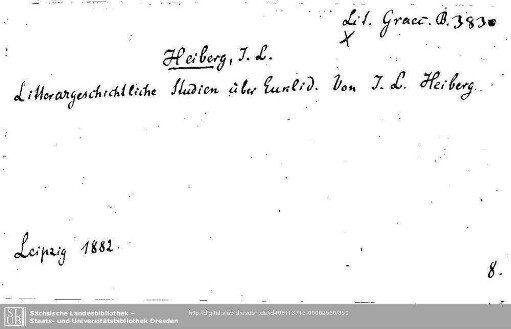 Lit. Graec. B. 383
X
Heiberg, J. L.
Litterargeschichtliche Studien über Euklid. Von J. L. Heiberg.
Leipzig 1882.
8.
SLUB
Sächsische Landesbibliothek –
Staats- und Universitätsbibliothek Dresden